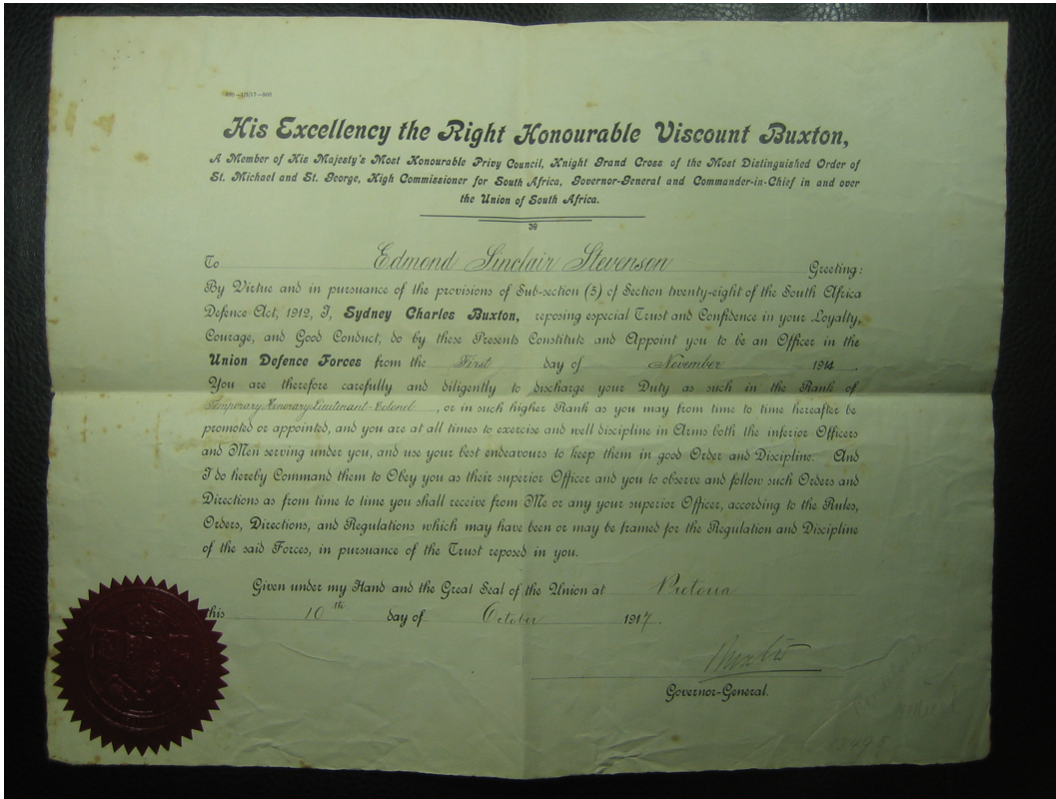 His Excellency the Right Honourable Viscount Buxton,
A Member of His Majesty's Most Honourable Privy Council, Knight Grand Cross of the Most Distinguished Order of
St. Michael and St. George, High Commissioner for South Africa, Governor-General and Commander-in-Chief in and over
the Union of South Africa.
To Edmond Sinclair Stevenson Greeting:
By Virtue and in pursuance of the provisions of Sub-section (5) of Section twenty-eight of the South Africa
Defence Act, 1912, I, Sydney Charles Buxton, reposing especial Trust and Confidence in your Loyalty,
Courage, and Good Conduct, do by these Presents Constitute and Appoint you to be an Officer in the
Union Defence Forces from the First day of November 1914.
You are therefore carefully and diligently to discharge your Duty as such in the Rank of
Temporary Honorary Lieutenant-Colonel, or in such higher Rank as you may from time to time hereafter be
promoted or appointed, and you are at all times to exercise and well discipline in Arms both the inferior Officers
and Men serving under you, and use your best endeavours to keep them in good Order and Discipline. And
I do hereby Command them to Obey you as their superior Officer and you to observe and follow such Orders and
Directions as from time to time you shall receive from Me or any your superior Officer, according to the Rules,
Orders, Directions, and Regulations which may have been or may be framed for the Regulation and Discipline
of the said Forces, in pursuance of the Trust reposed in you.
Given under my Hand and the Great Seal of the Union at Pretoria
this 10th day of October 1917.
Buxton
Governor-General.